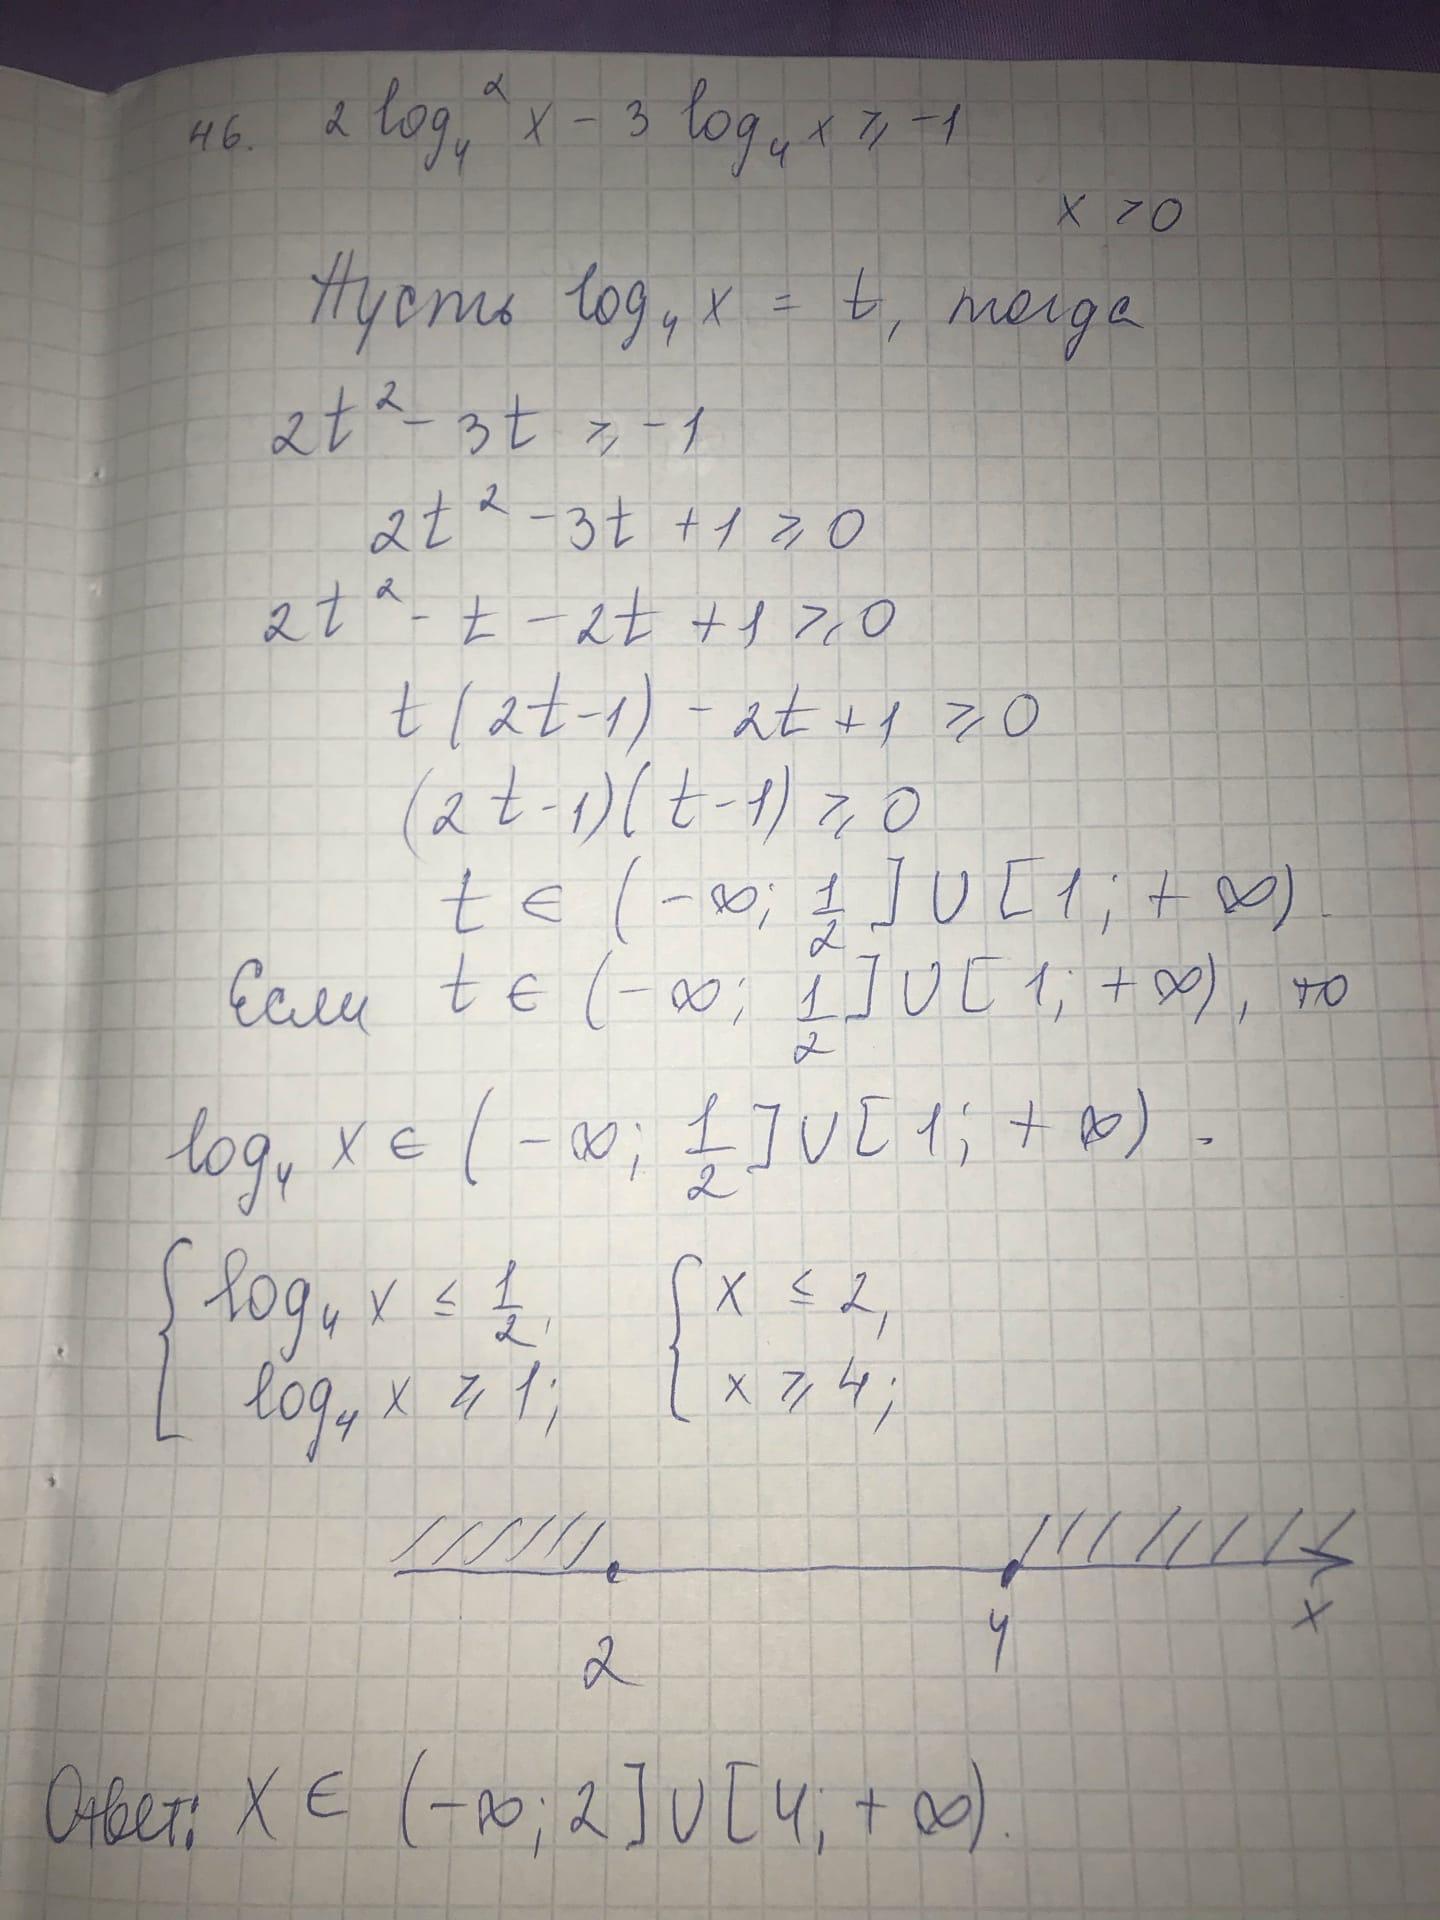 46. 2 log₄² x - 3 log₄ x ⩾ -1
x > 0
Пусть log₄ x = t, тогда
2t² - 3t ⩾ -1
2t² - 3t + 1 ⩾ 0
2t² - t - 2t + 1 ⩾ 0
t(2t-1) - 2t + 1 ⩾ 0
(2t-1)(t-1) ⩾ 0
t ∈ (-∞; 1/2] ∪ [1; +∞).
Если t ∈ (-∞; 1/2] ∪ [1; +∞), то
log₄ x ∈ (-∞; 1/2] ∪ [1; +∞).
{ log₄ x ≤ 1/2, { x ≤ 2,
log₄ x ⩾ 1; x ⩾ 4;
2 4 x
Ответ: x ∈ (-∞; 2] ∪ [4; +∞).